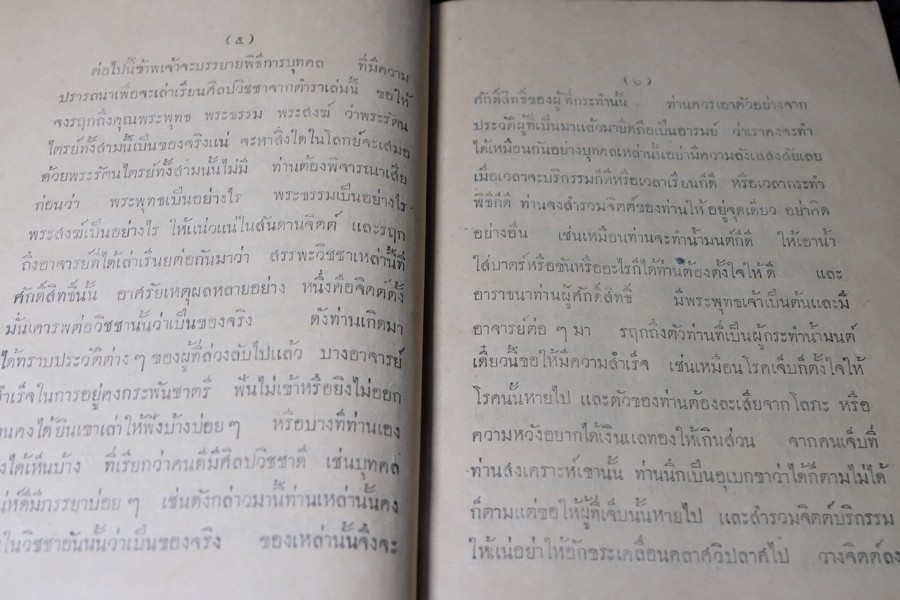 (๕)
ต่อไปนี้ข้าพเจ้าจะบรรยายพิธีการบุทคล ที่มีความ
ปรารถนาเพื่อจะเล่าเรียนศิลปวิชชาจากตำราเล่มนี้ ขอให้
จงรฤกถึงคุณพระพุทธ พระธรรม พระสงฆ์ ว่าพระรัตน
ไตรย์ทั้งสามนี้เป็นของจริงแน่ จะหาสิ่งใดในโลกย์จะเสมอ
ด้วยพระรัตนไตรย์ทั้งสามนั้นไม่มี ท่านต้องพิจารณาเสีย
ก่อนว่า พระพุทธเป็นอย่างไร พระธรรมเป็นอย่างไร
พระสงฆ์เป็นอย่างไร ให้แน่วแน่ในสันดานจิตต์ และรฤก
ถึงอาจารย์ที่ได้เล่าเรียนต่อกันมาว่า สรรพะวิชชาเหล่านี้ที่
ศักดิ์สิทธิ์นั้น อาศรัยเหตุผลหลายอย่าง หนึ่งคือจิตต์ตั้ง
มั่นเคารพต่อวิชชานั้นว่าเป็นของจริง ดังท่านเกิดมา
ได้ทราบประวัติต่าง ๆ ของผู้ที่ล่วงลับไปแล้ว บางอาจารย์
สำเร็จในการอยู่คงกระพันชาตรี ฟันไม่เข้าหรือยิงไม่ออก
นคงได้ยินเขาเล่าให้ฟังบ้างบ่อย ๆ หรือบางทีท่านเอง
งได้เห็นบ้าง ที่เรียกว่าคนดีมีศิลปวิชชาดี เช่นบุทคล
น่ห์ดีมีภรรยาบ่อย ๆ เช่นดังกล่าวมานี้ท่านเหล่านั้นคง
ในวิชชาอันนั้นว่าเป็นของจริง ของเหล่านั้นจึงจะ
(๖)
ศักดิ์สิทธิ์ของผู้ที่กระทำนั้น ท่านควรเอาตัวอย่างจาก
ประวัติผู้ที่เป็นมาแล้วมายึดถือเป็นอารมย์ ว่าเราคงจะทำ
ได้เหมือนกันอย่างบุทคลเหล่านั้นอย่ามีความลังเลสงสัยเลย
เมื่อเวลาจะบริกรรมก็ดีหรือเวลาเรียนก็ดี หรือเวลากระทำ
พิธีก็ดี ท่านจงสำรวมจิตต์ของท่านให้อยู่จุดเดียว อย่าคิด
อย่างอื่น เช่นเหมือนท่านจะทำน้ำมนต์ก็ดี ให้เอาน้ำ
ใส่บาตร์หรือขันหรืออะไรก็ได้ท่านต้องตั้งใจให้ดี และ
อาราธนาท่านผู้ศักดิ์สิทธิ์ มีพระพุทธเจ้าเป็นต้นและมี
อาจารย์ต่อ ๆ มา รฤกถึงตัวท่านที่เป็นผู้กระทำน้ำมนต์
เดี๋ยวนี้ขอให้มีความสำเร็จ เช่นเหมือนโรคเจ็บก็ตั้งใจให้
โรคนั้นหายไป และตัวของท่านต้องละเสียจากโลภะ หรือ
ความหวังอยากได้เงินแลทองให้เกินส่วน จากคนเจ็บที่
ท่านสงเคราะห์เขานั้น ท่านนึกเป็นอุเบกขาว่าได้ก็ตามไม่ได้
ก็ตามแต่ขอให้ผู้ที่เจ็บนั้นหายไป และสำรวมจิตต์บริกรรม
ให้แน่อย่าให้อักขระเคลื่อนคลาศวิปลาศไป วางจิตต์ลง